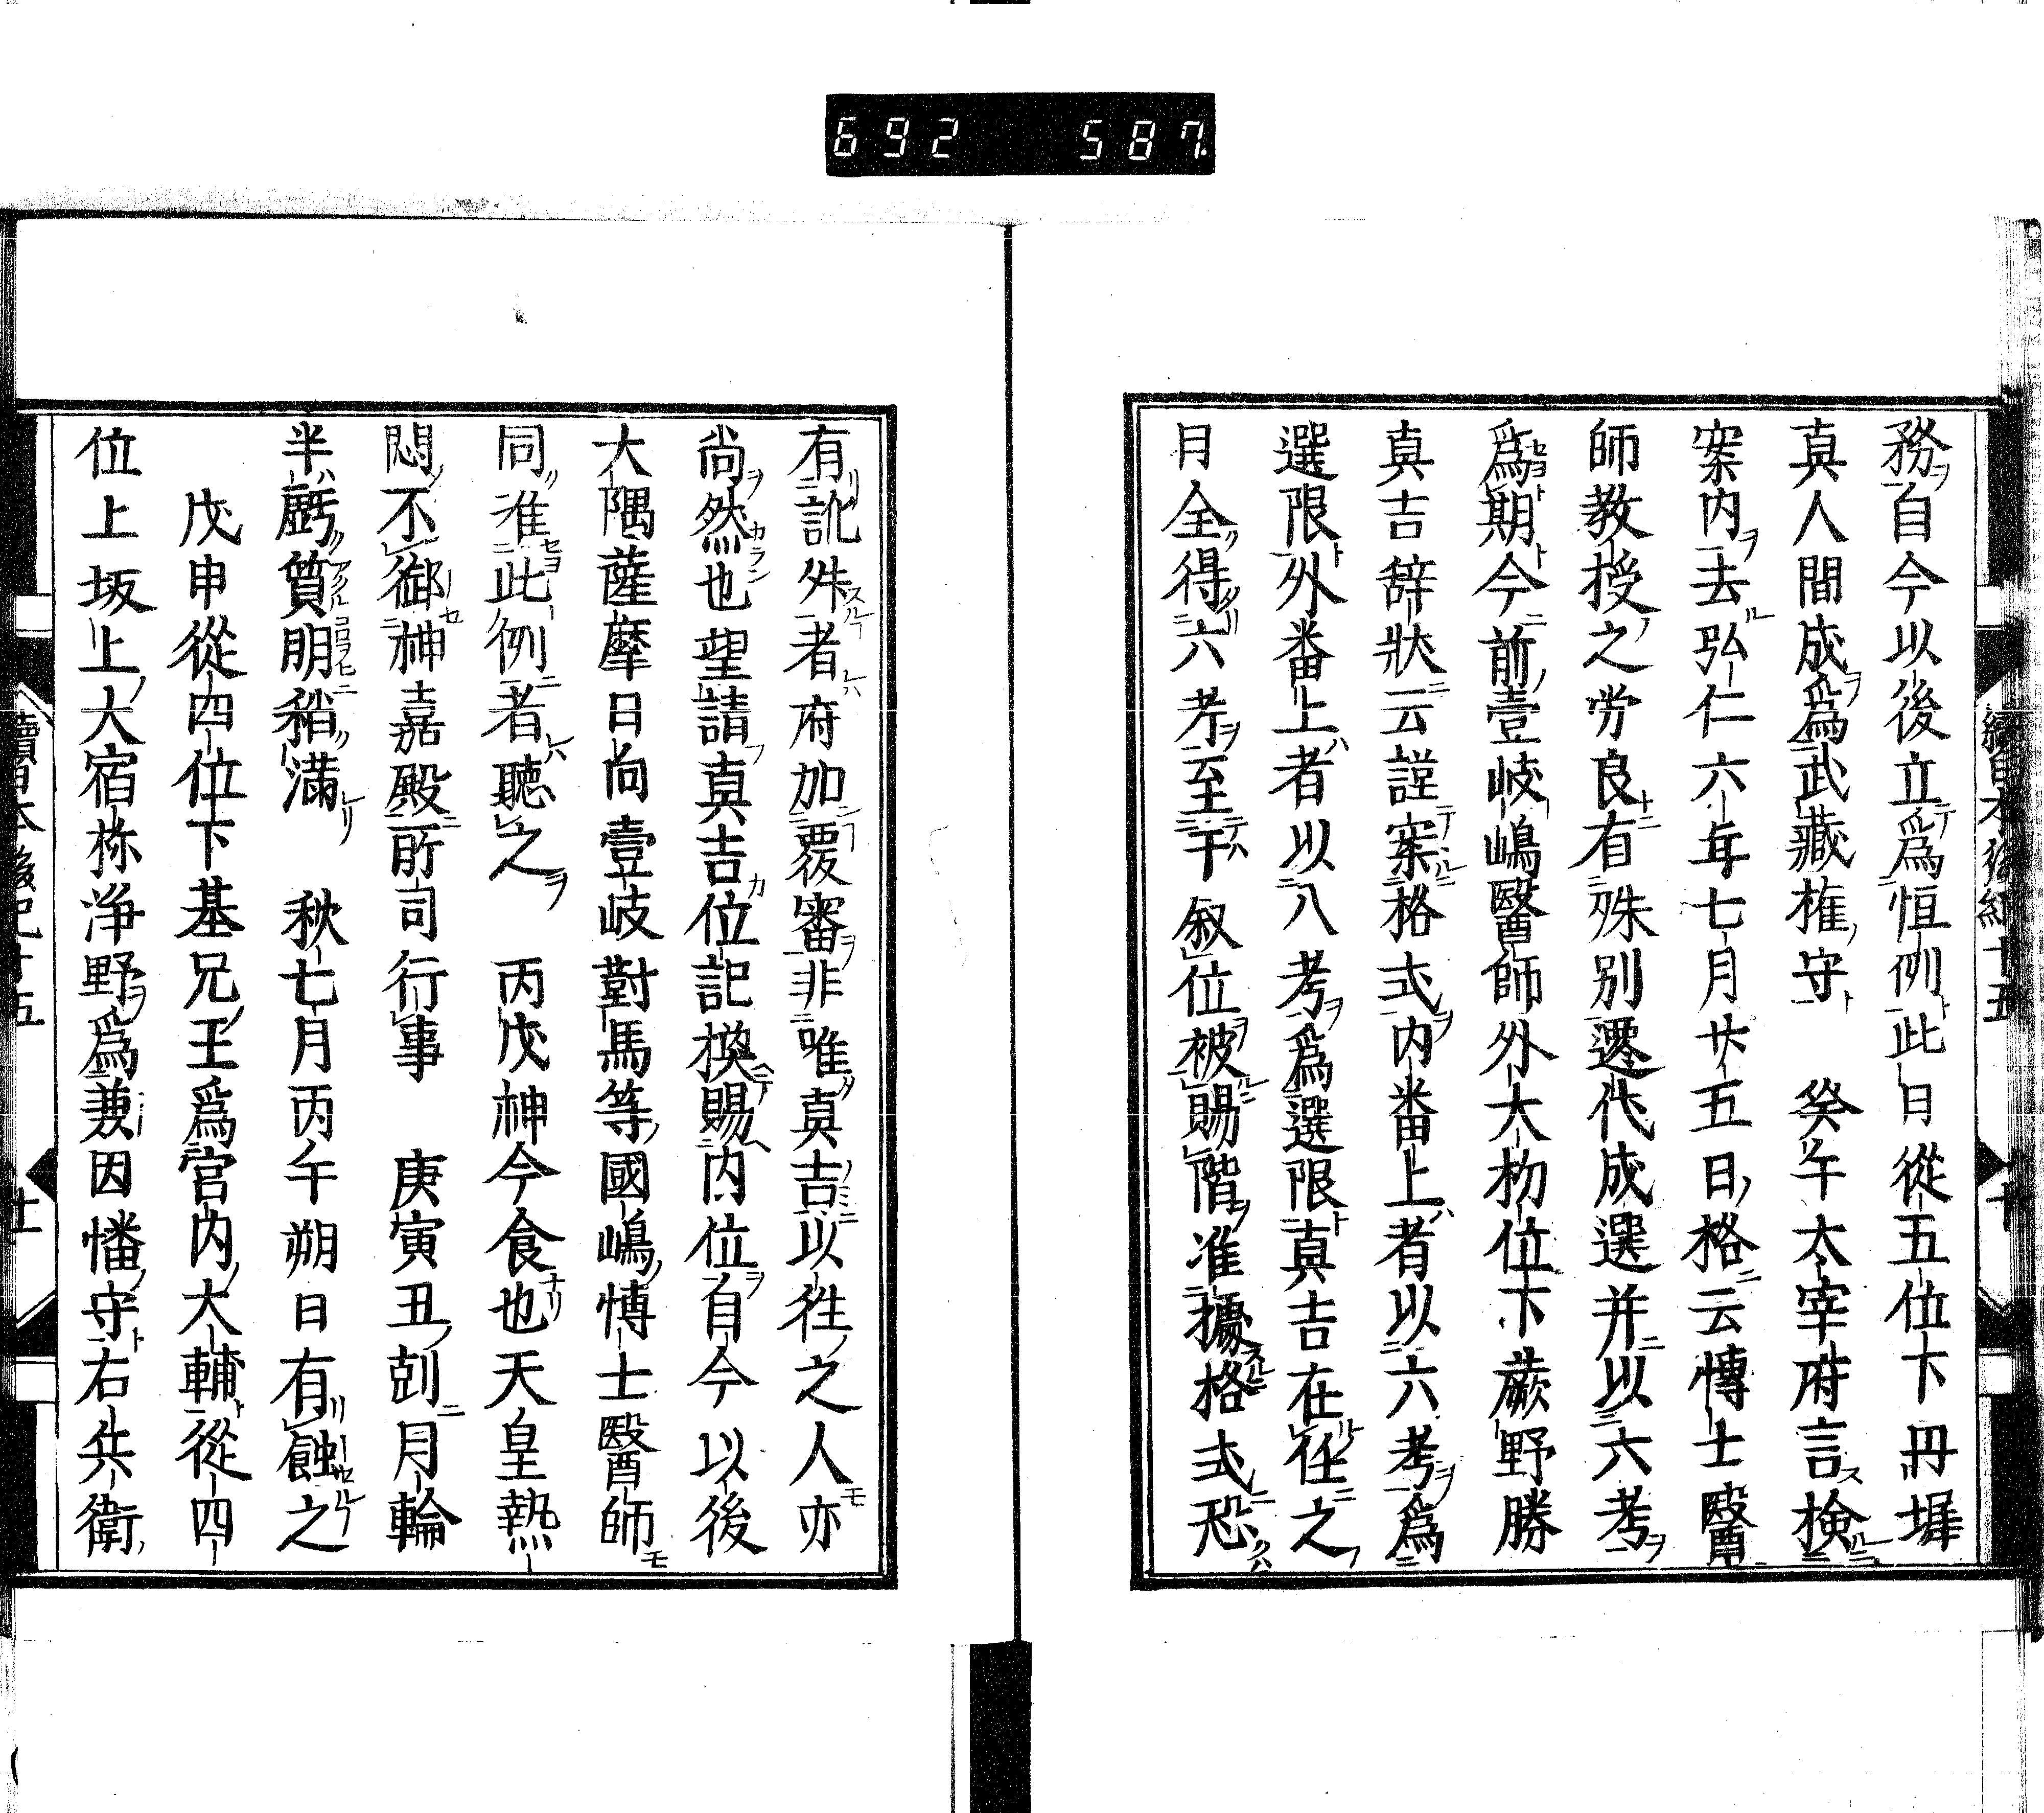 692 587
務自今以後立爲恒例此日從五位下丹墀
真人間成爲武藏權守 癸午太宰府言檢
案内去弘仁六年七月廿五日格云博士醫
師教授之労良有殊別遷代成選并以六考
爲期今前壹岐嶋醫師外大初位下蕨野勝
真吉辞狀云謹案格式内番上者以六考爲
選限外番上者以八考爲選限真吉在任之
日全得六考至于叙位被賜階准據格式恐
有訛舛者府加覆審非唯真吉以徃之人亦
尚然也望請真吉位記換賜内位自今以後
大隅薩摩日向壹岐對馬等國嶋博士醫師
同准此例者聽之 丙戌神今食也天皇熱
悶不御神嘉殿所司行事 庚寅丑剋月輪
半虧質明稍滿 秋七月丙午朔日有蝕之
戊申從四位下基兄王爲宮内大輔從四
位上坂上大宿祢淨野爲兼因幡守右兵衛